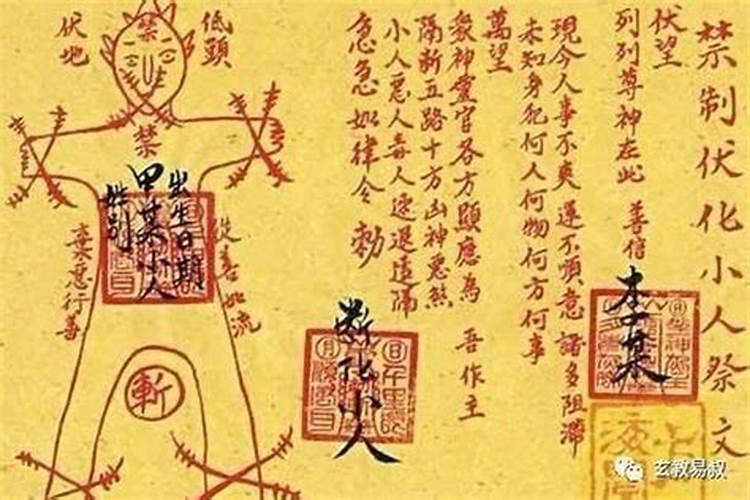 禁制伏化小人祭文
伏望
列列尊神在此 善信
李某
現今人事不爽 運不順意 諸多阻滯
未知身犯何人何物何方何事
萬望
眾神靈官各方顯應為 吾作主
隔断五路十方凶神惡煞
小人惡人毒人速退遠隔
急急如律令 勅
断化小人
低頭
伏地
禁
禁
出生日期
甲某小人
姓别
棄惡行善
從善如流
斬
玄教易叔